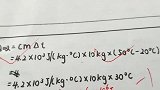 Q吸=cmΔt
=4.2×10³J/(kg·℃)×10kg×(50℃-20℃)
=4.2×10³J/(kg·℃)×10kg×30℃